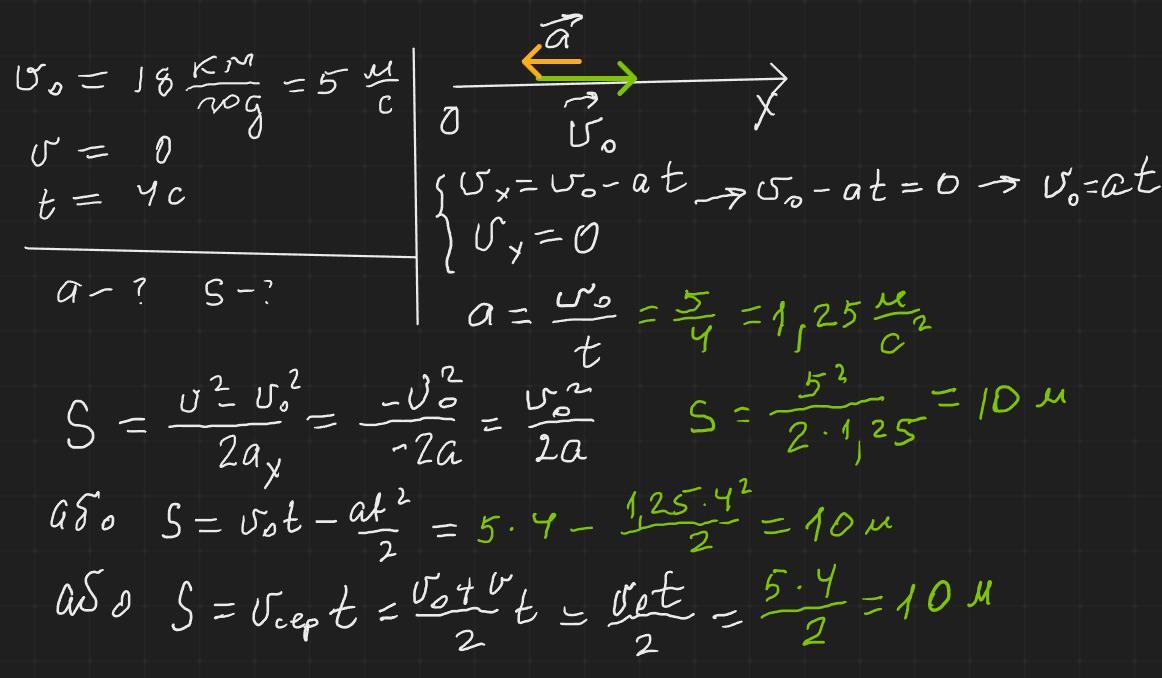 v₀ = 18 км/год = 5 м/с
v = 0
t = 4с
a - ? S - ?
a⃗
0 v⃗₀ X
{ vₓ = v₀ - at → v₀ - at = 0 → v₀ = at
vₓ = 0
a = v₀/t = 5/4 = 1,25 м/с²
S = (v² - v₀²)/(2aₓ) = (-v₀²)/(-2a) = v₀²/(2a) S = 5²/(2·1,25) = 10 м
або S = v₀t - at²/2 = 5·4 - (1,25·4²)/2 = 10 м
або S = v_сер t = (v₀+v)/2 t = v₀t/2 = (5·4)/2 = 10 м